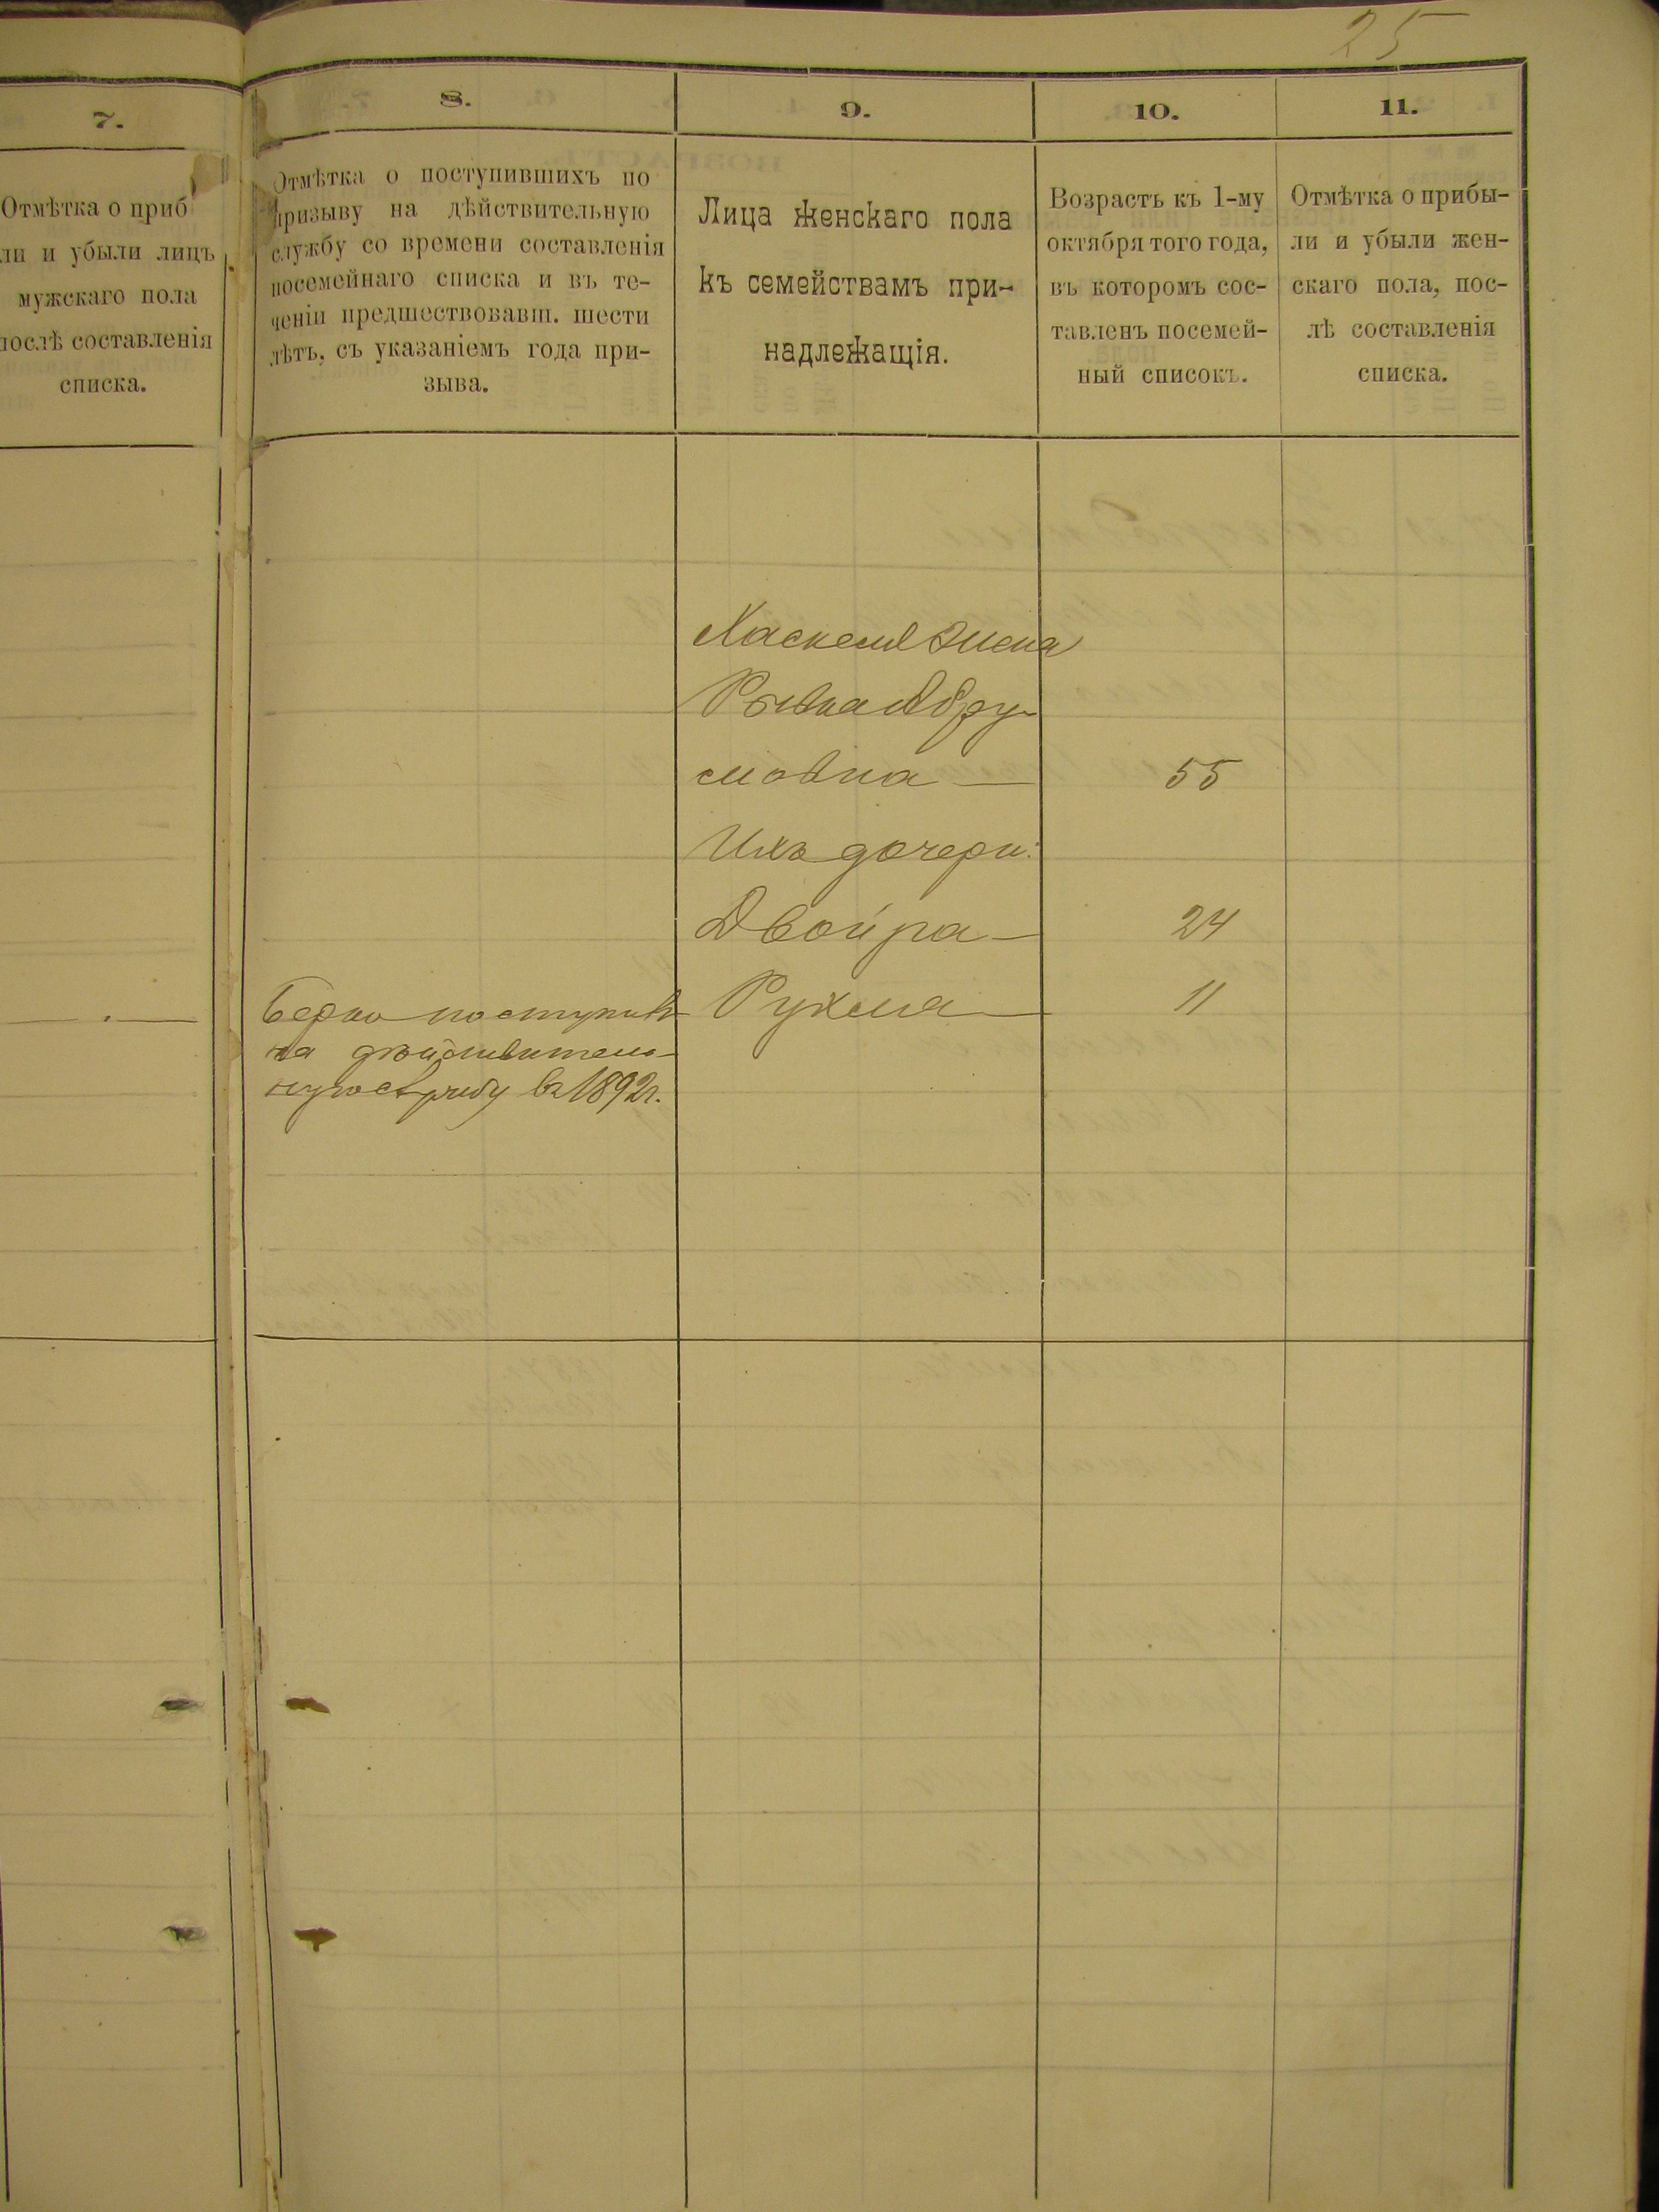 25
7.
Отмѣтка о приб
ли и убыли лицъ
мужскаго пола
послѣ составленія
списка.
8.
Отмѣтка о поступившихъ по
призыву на дѣйствительную
службу со времени составленія
посемейнаго списка и въ те-
ченіи предшествовавш. шести
лѣтъ, съ указаніемъ года при-
зыва.
9.
Лица женскаго пола
къ семействамъ при-
надлежащія.
10.
Возрастъ къ 1-му
октября того года,
въ которомъ сос-
тавленъ посемей-
ный списокъ.
11.
Отмѣтка о прибы-
ли и убыли жен-
скаго пола, пос-
лѣ составленія
списка.
Хаскеля жена
Рывка Абру-
мовна — 55
Ихъ дочери:
Двойра — 24
Рухля — 11
Берко поступилъ
на дѣйствитель-
ную службу въ 1892 г.